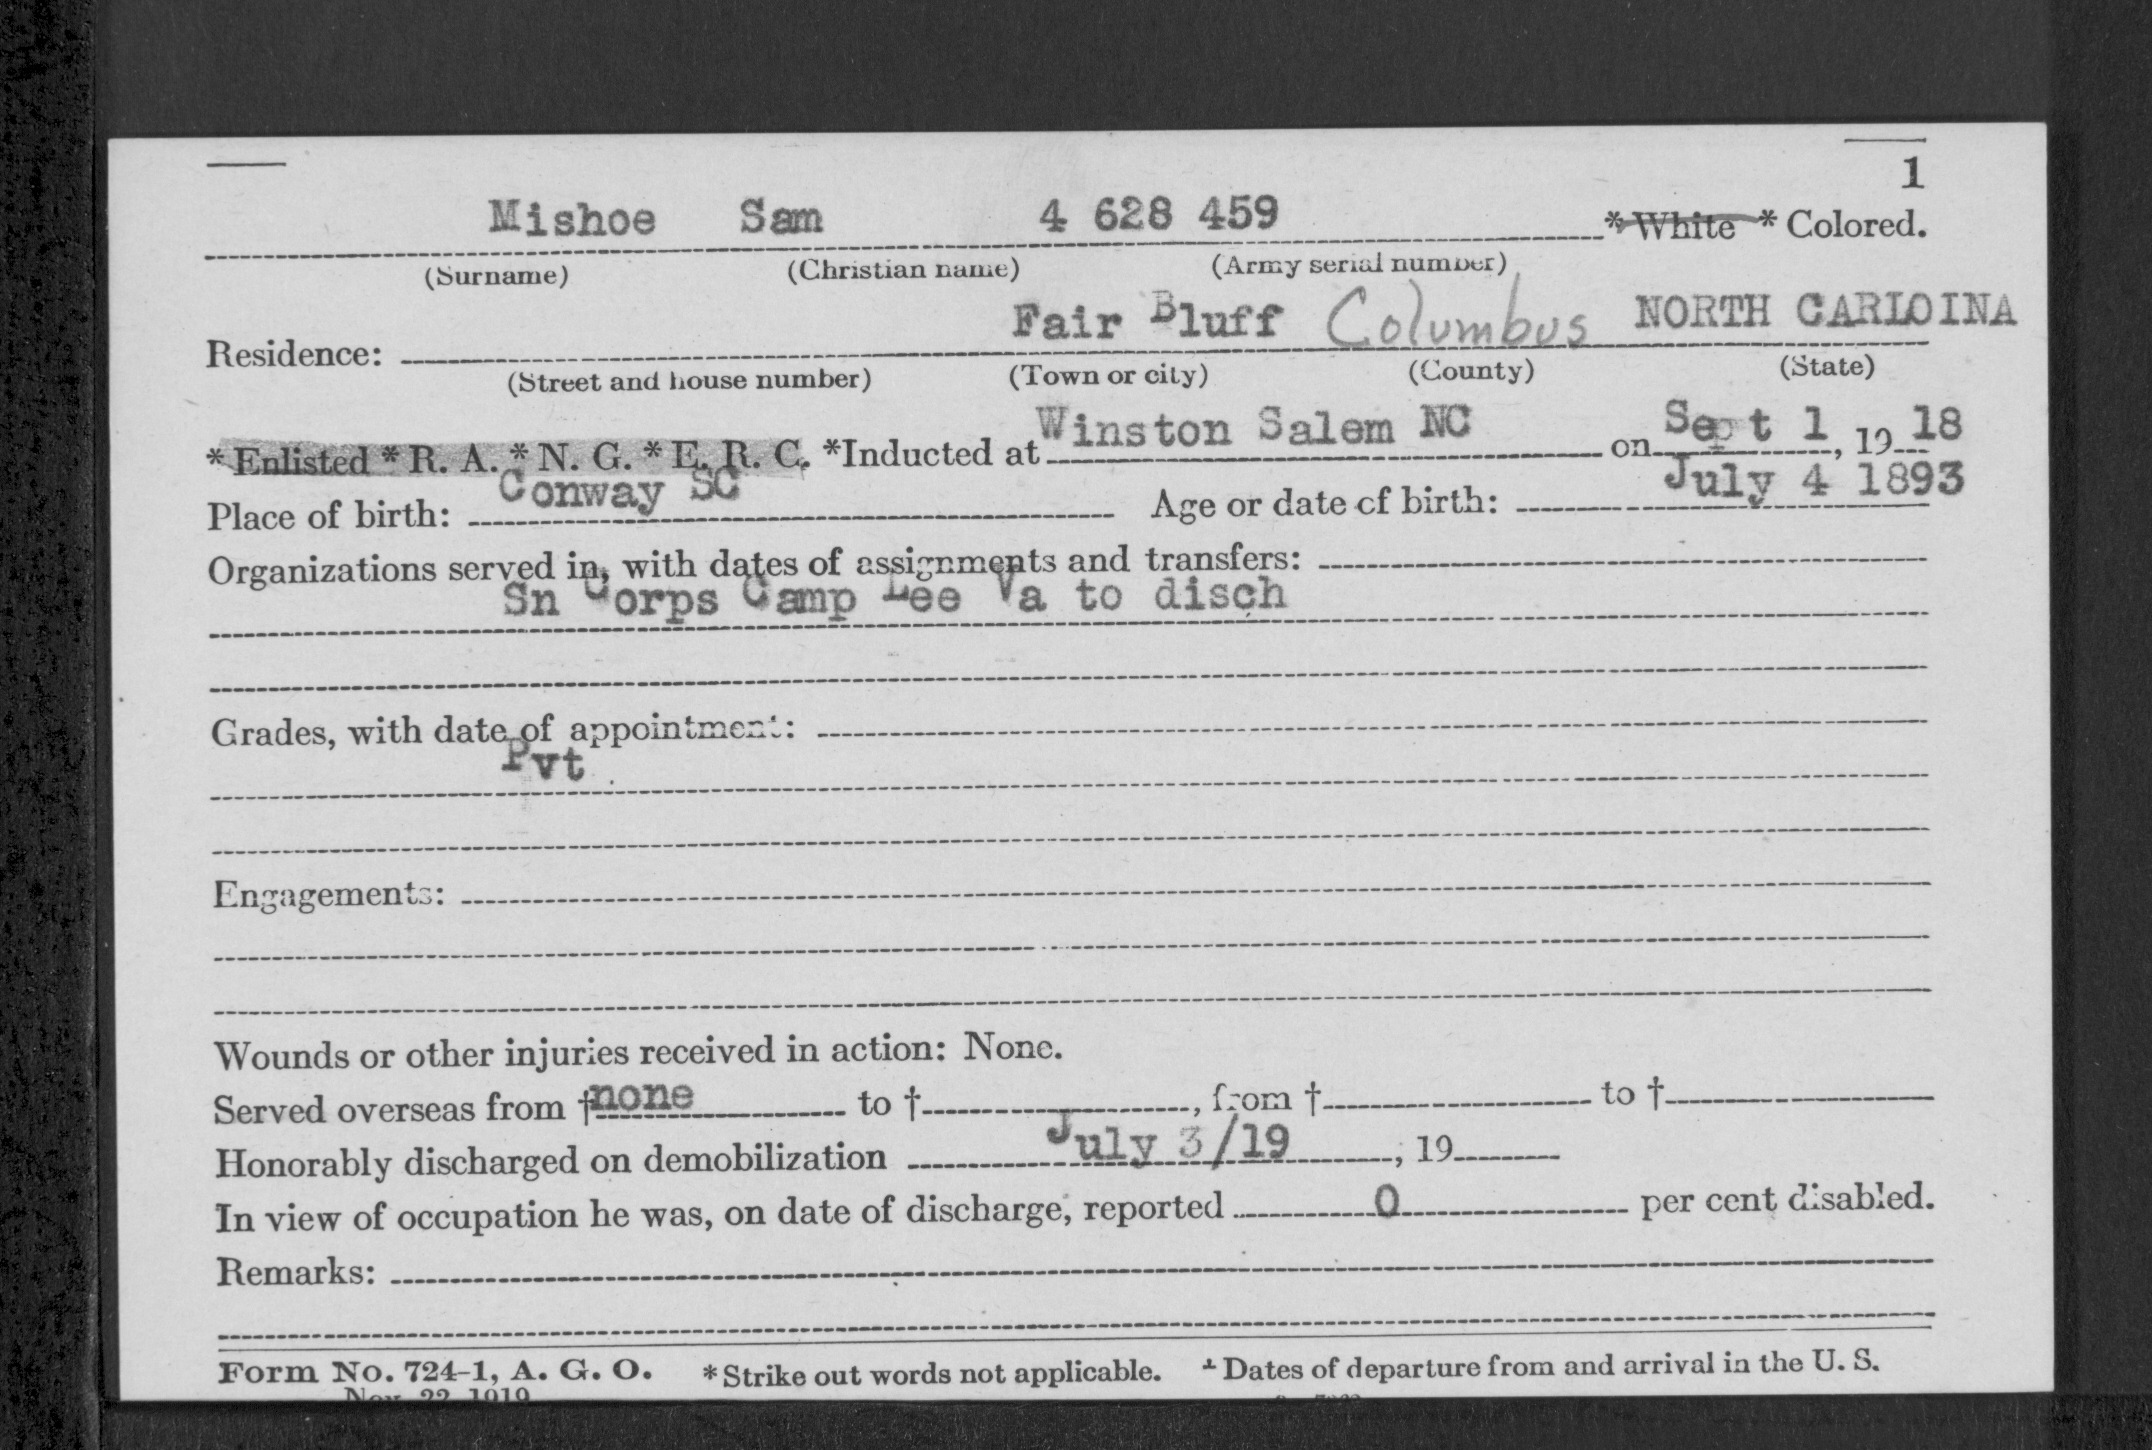 1
Mishoe Sam 4 628 459 * White * Colored.
(Surname) (Christian name) (Army serial number)
Residence: Fair Bluff Columbus NORTH CARLOINA
(Street and house number) (Town or city) (County) (State)
* Enlisted * R. A. * N. G. * E. R. C. *Inducted at Winston Salem NC on Sept 1, 19 18
Place of birth: Conway SC Age or date of birth: July 4 1893
Organizations served in, with dates of assignments and transfers:
Sn Corps Camp Lee Va to disch
Grades, with date of appointment:
Pvt
Engagements:
Wounds or other injuries received in action: None.
Served overseas from † none to †, from † to †
Honorably discharged on demobilization July 3/19, 19
In view of occupation he was, on date of discharge, reported 0 per cent disabled.
Remarks:
Form No. 724-1, A. G. O. * Strike out words not applicable. † Dates of departure from and arrival in the U. S.
Nov. 22, 1919